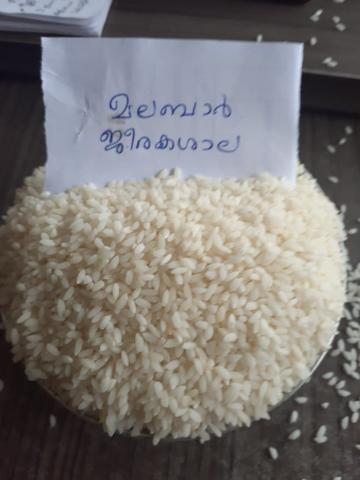 മലബാർ
ജീരകശാല